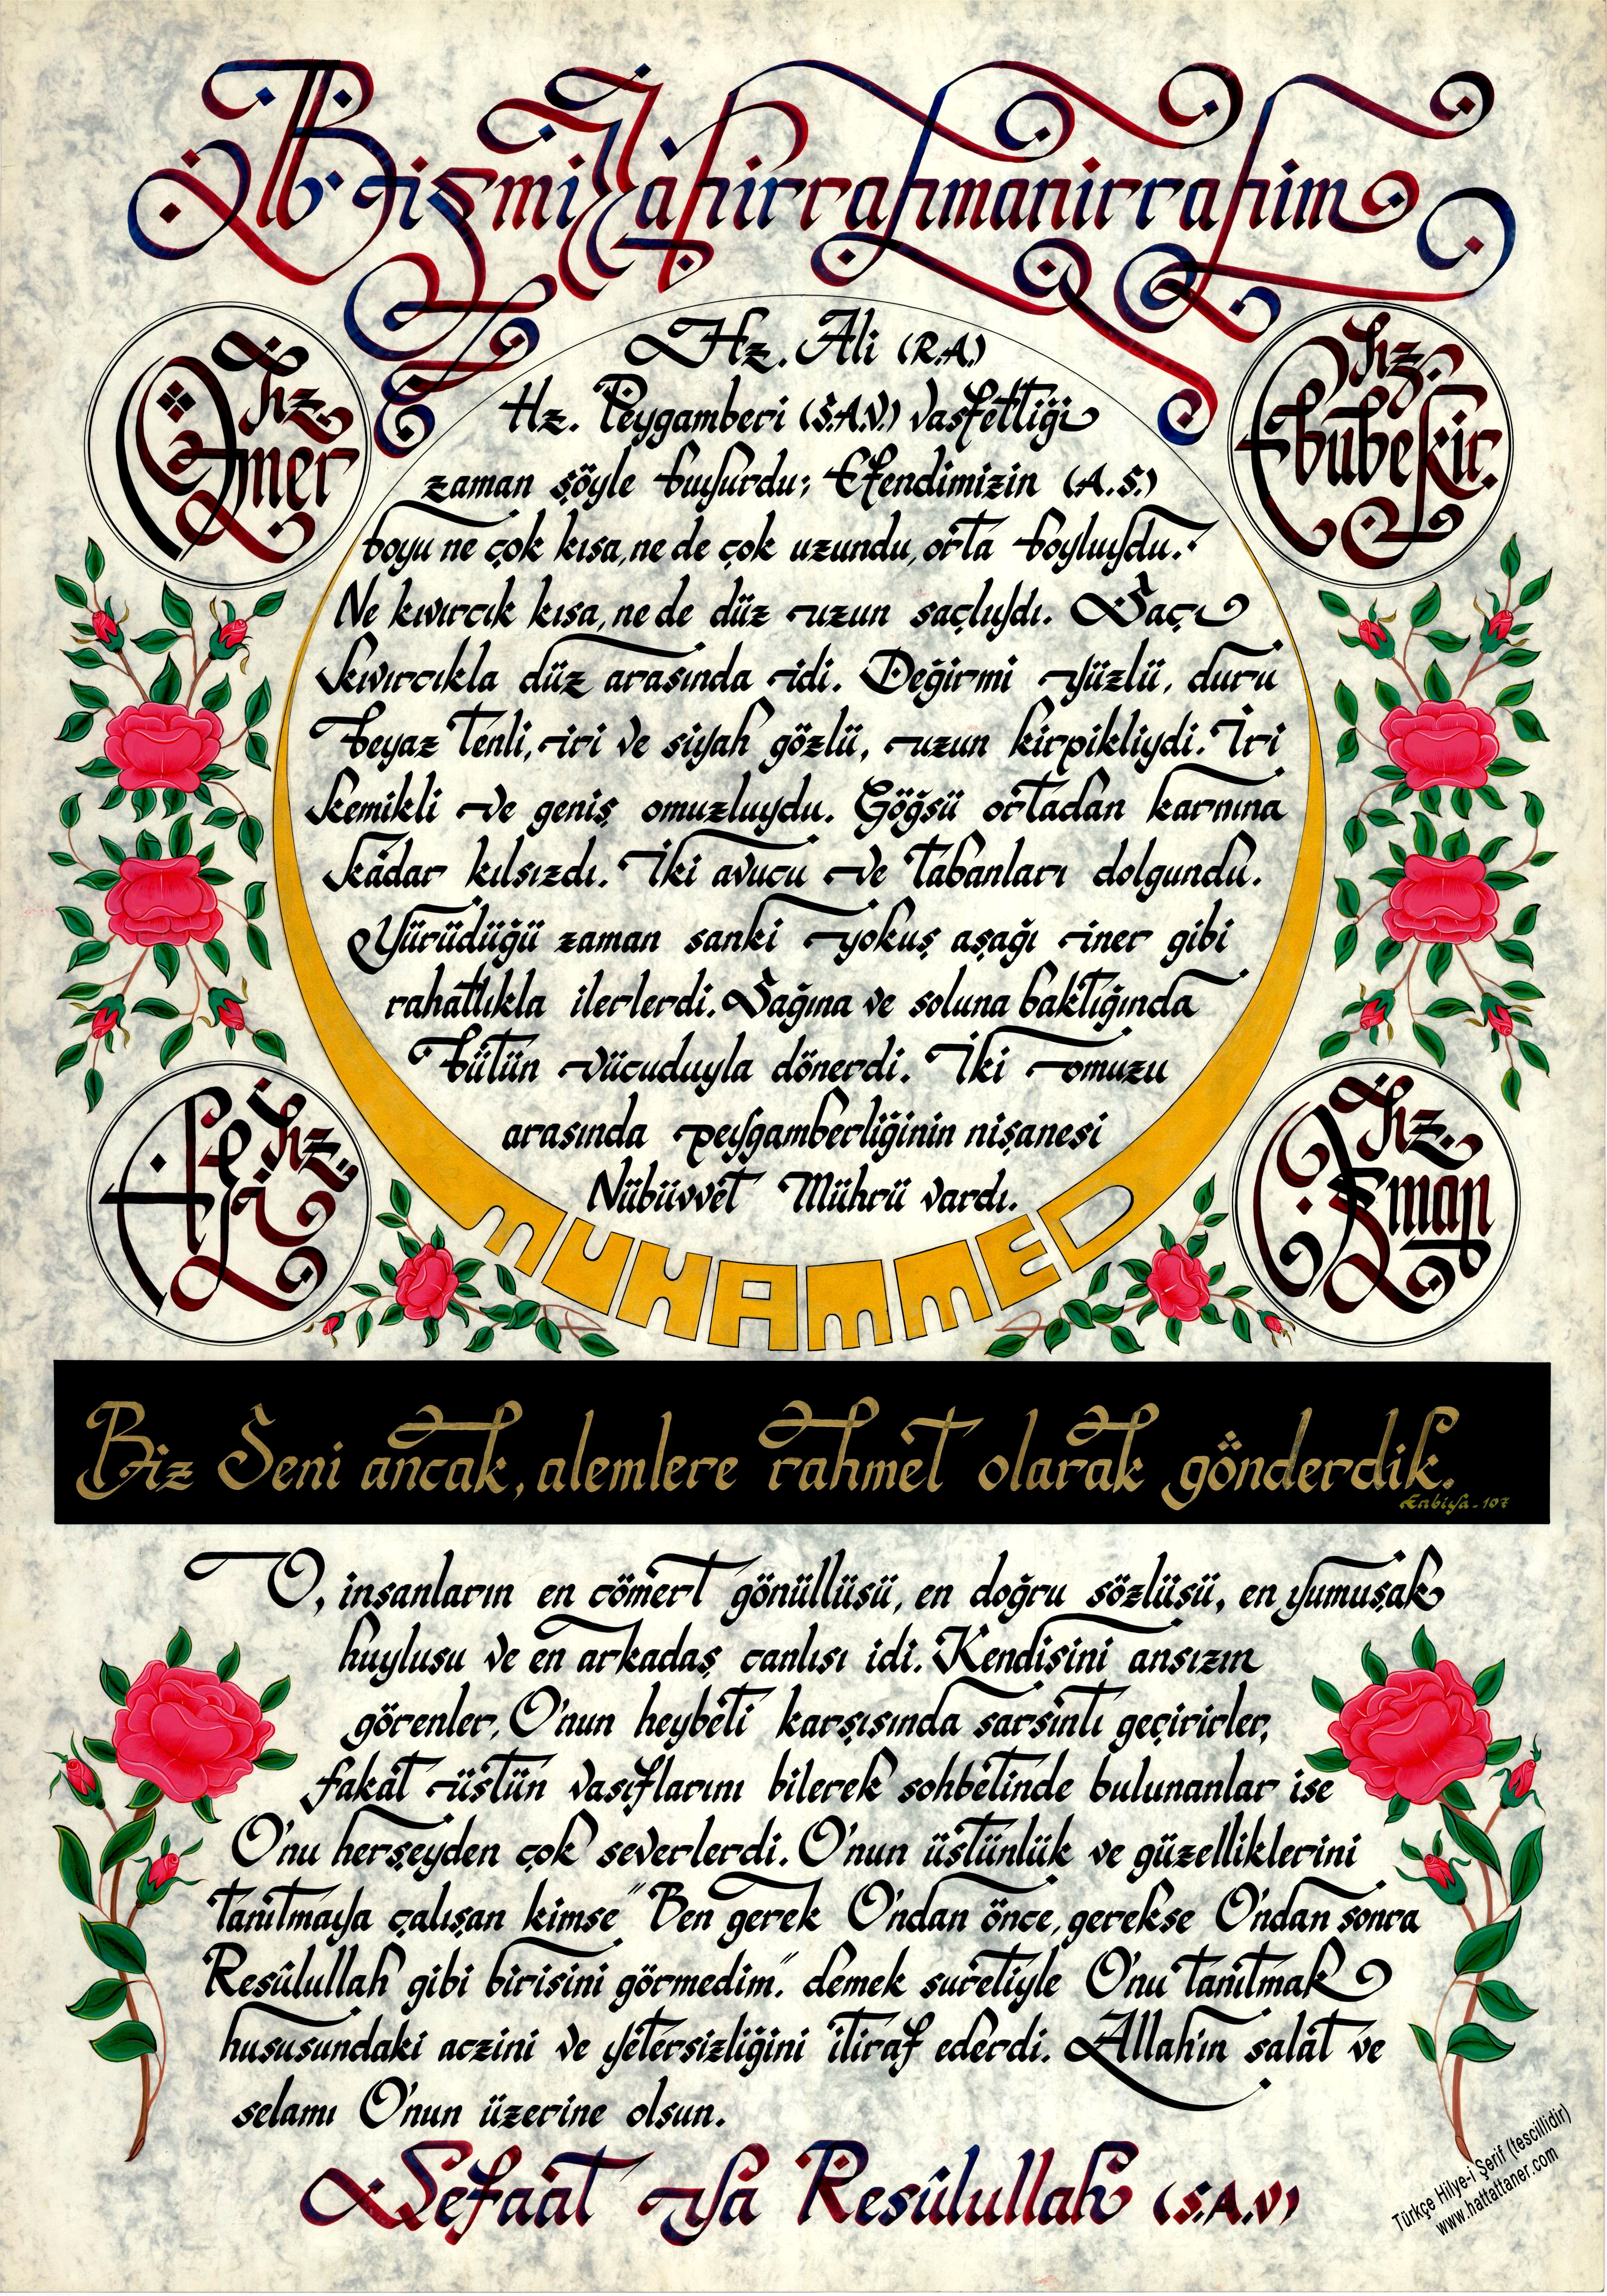 Bismillahirrahmanirrahim
Hz. Ömer
Hz. Ebubekir.
Hz. Ali (R.A.)
Hz. Peygamberi (S.A.V.) vasfettiği
zaman şöyle buyurdu; Efendimizin (A.S.)
boyu ne çok kısa, ne de çok uzundu, orta boyluydu.
Ne kıvırcık kısa, ne de düz uzun saçlıydı. Saçı
kıvırcıkla düz arasında idi. Değirmi yüzlü, duru
beyaz tenli, iri ve siyah gözlü, uzun kirpikliydi. İri
kemikli ve geniş omuzluydu. Göğsü ortadan karnına
kadar kılsızdı. İki avucu ve tabanları dolgundu.
Yürüdüğü zaman sanki yokuş aşağı iner gibi
rahatlıkla ilerlerdi. Sağına ve soluna baktığında
bütün vücuduyla dönerdi. İki omuzu
arasında peygamberliğinin nişanesi
Nübüvvet Mührü vardı.
Hz. Ali
Hz. Osman
MUHAMMED
Biz Seni ancak, alemlere rahmet olarak gönderdik.
Enbiya-107
O, insanların en cömert gönüllüsü, en doğru sözlüsü, en yumuşak
huylusu ve en arkadaş canlısı idi. Kendisini ansızın
görenler, O'nun heybeti karşısında sarsıntı geçirirler,
fakat üstün vasıflarını bilerek sohbetinde bulunanlar ise
O'nu herşeyden çok severlerdi. O'nun üstünlük ve güzelliklerini
tanıtmaya çalışan kimse "Ben gerek O'ndan önce, gerekse O'ndan sonra
Resûlullah gibi birisini görmedim." demek suretiyle O'nu tanıtmak
hususundaki aczini ve yetersizliğini itiraf ederdi. Allah'ın salât ve
selamı O'nun üzerine olsun.
Şefaat Ya Resûlullah (S.A.V)
Türkçe Hilye-i Şerif (tescillidir)
www.hattattaner.com